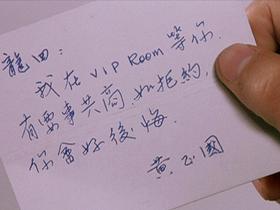 龍四：
我在 VIP Room 等你.
有要事共商. 如拒約,
你會好後悔.
黃正國